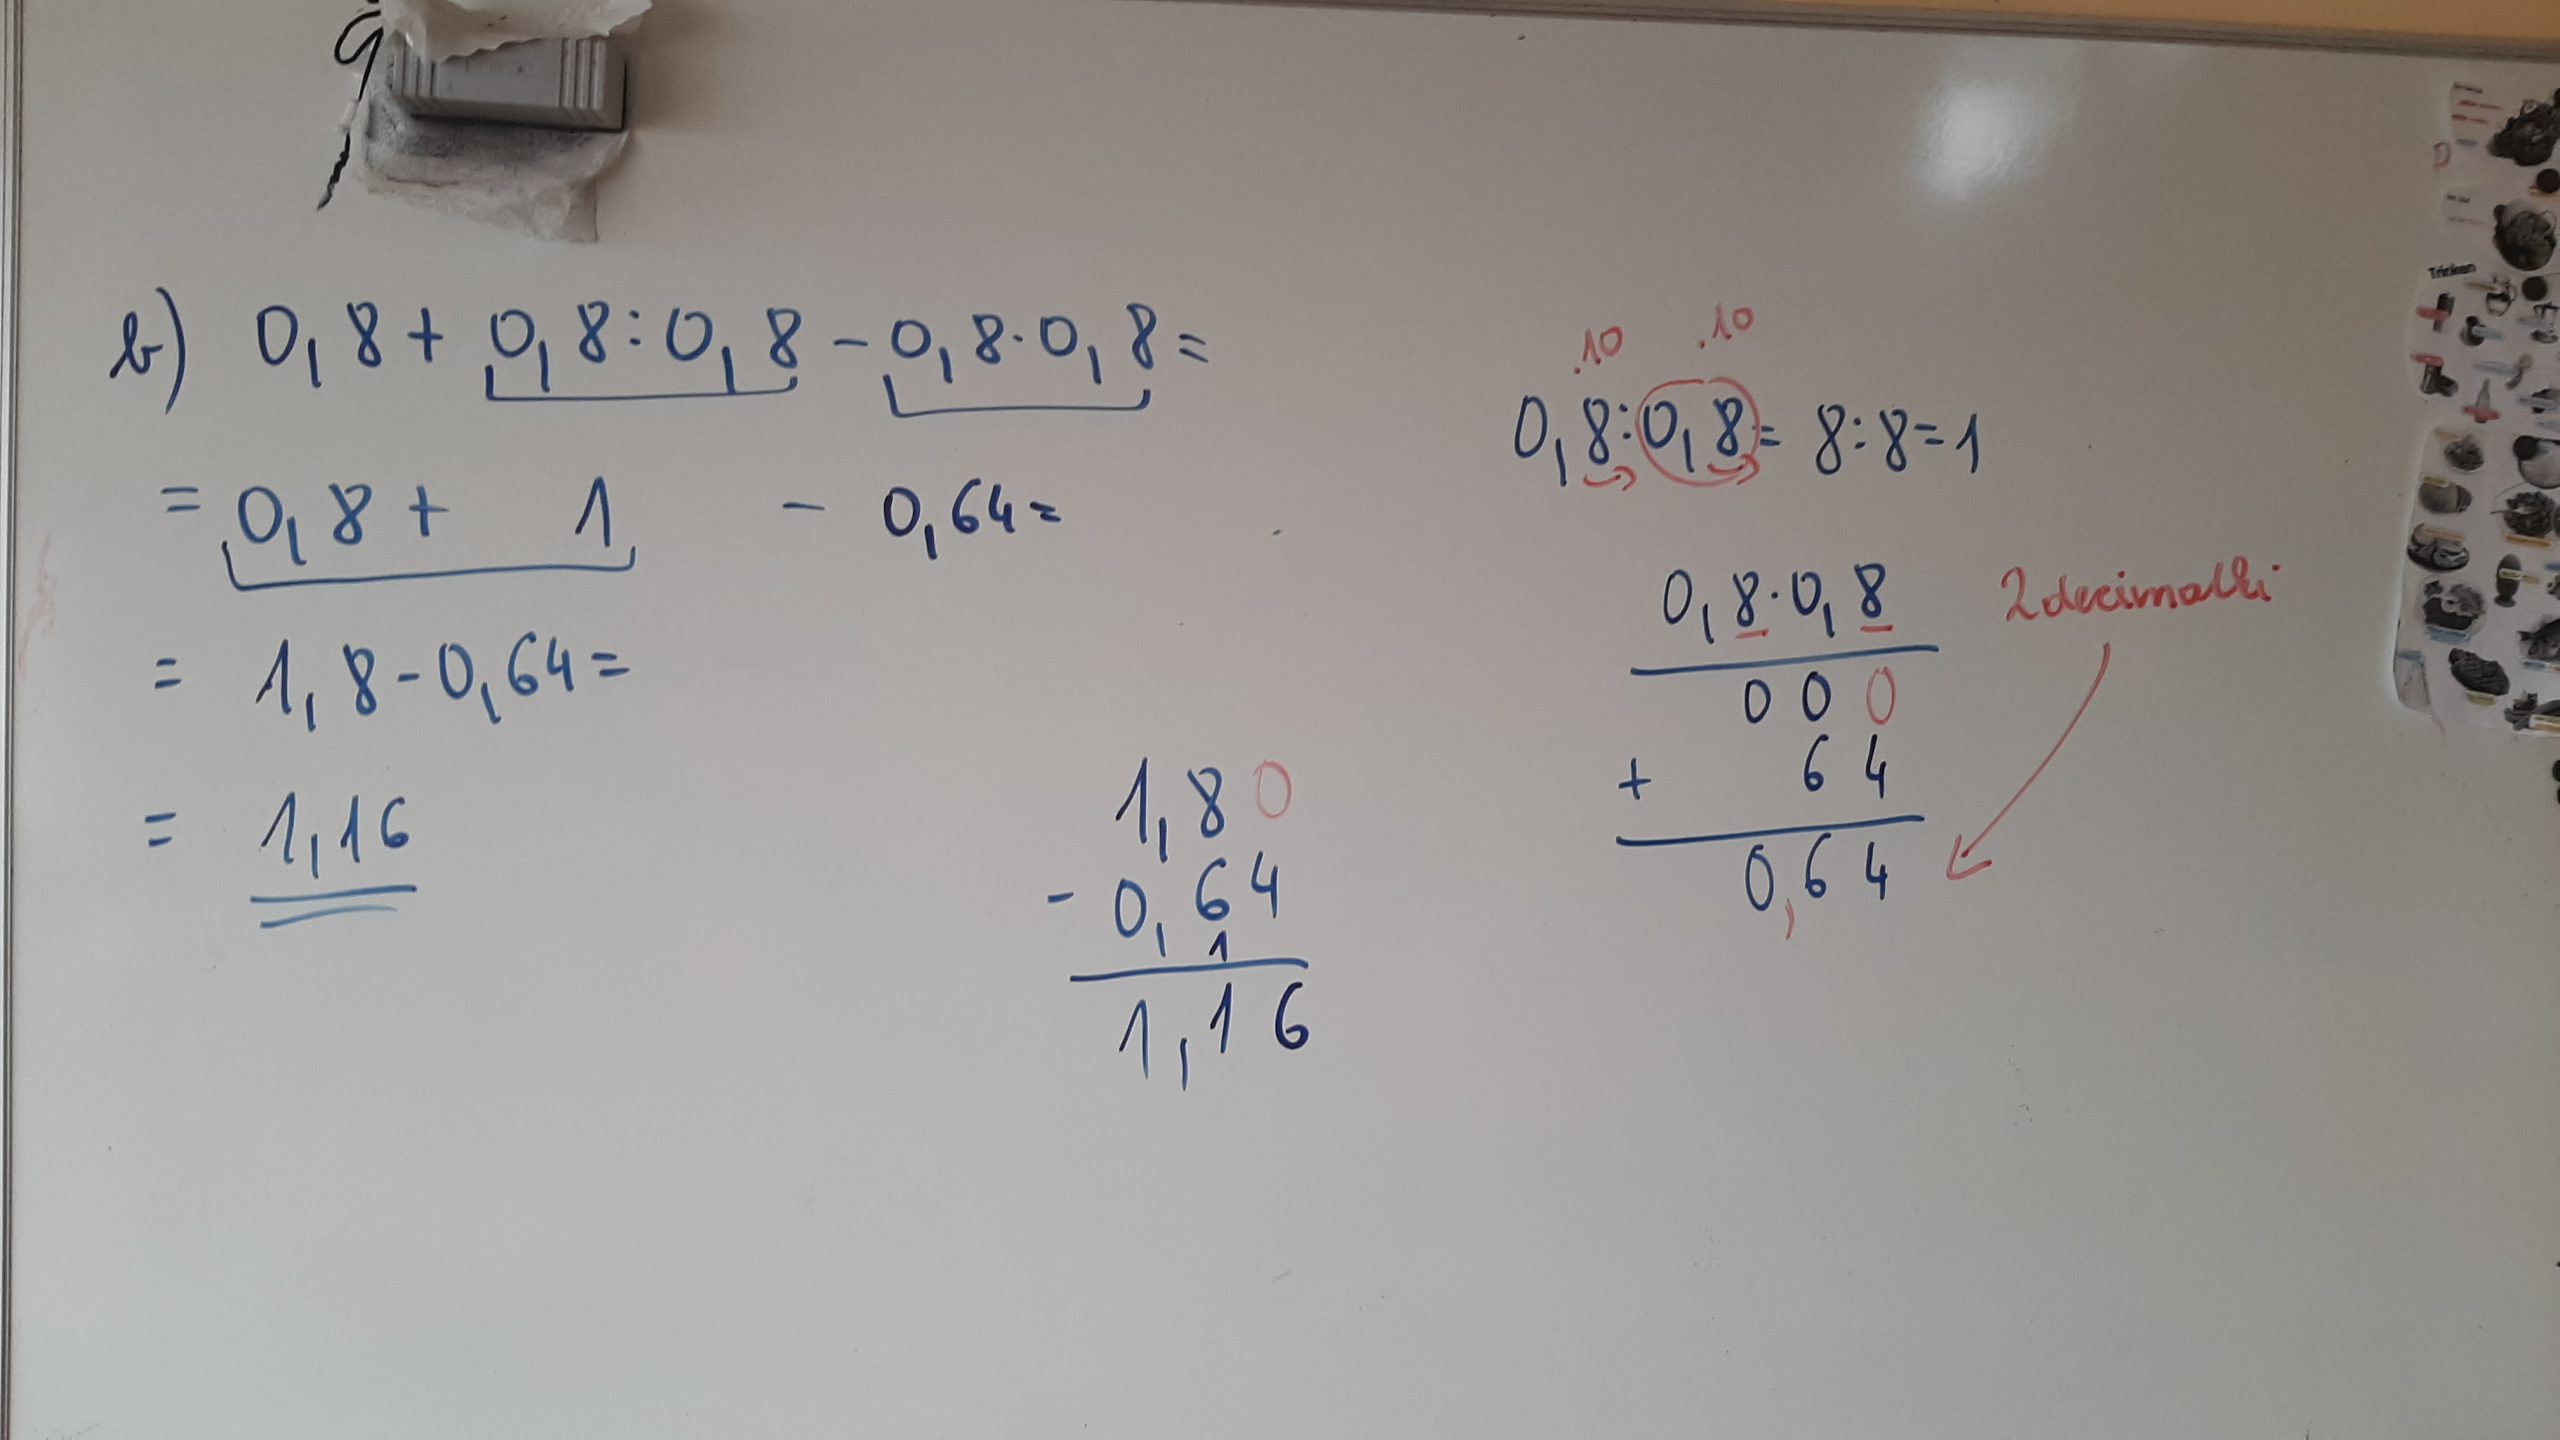 b) 0,8 + 0,8 : 0,8 - 0,8 · 0,8 =
= 0,8 + 1 - 0,64 =
= 1,8 - 0,64 =
= 1,16
1,80
- 0,64
1
1,16
·10 ·10
0,8 : 0,8 = 8 : 8 = 1
0,8 · 0,8
000
+ 64
0,64
Trinken